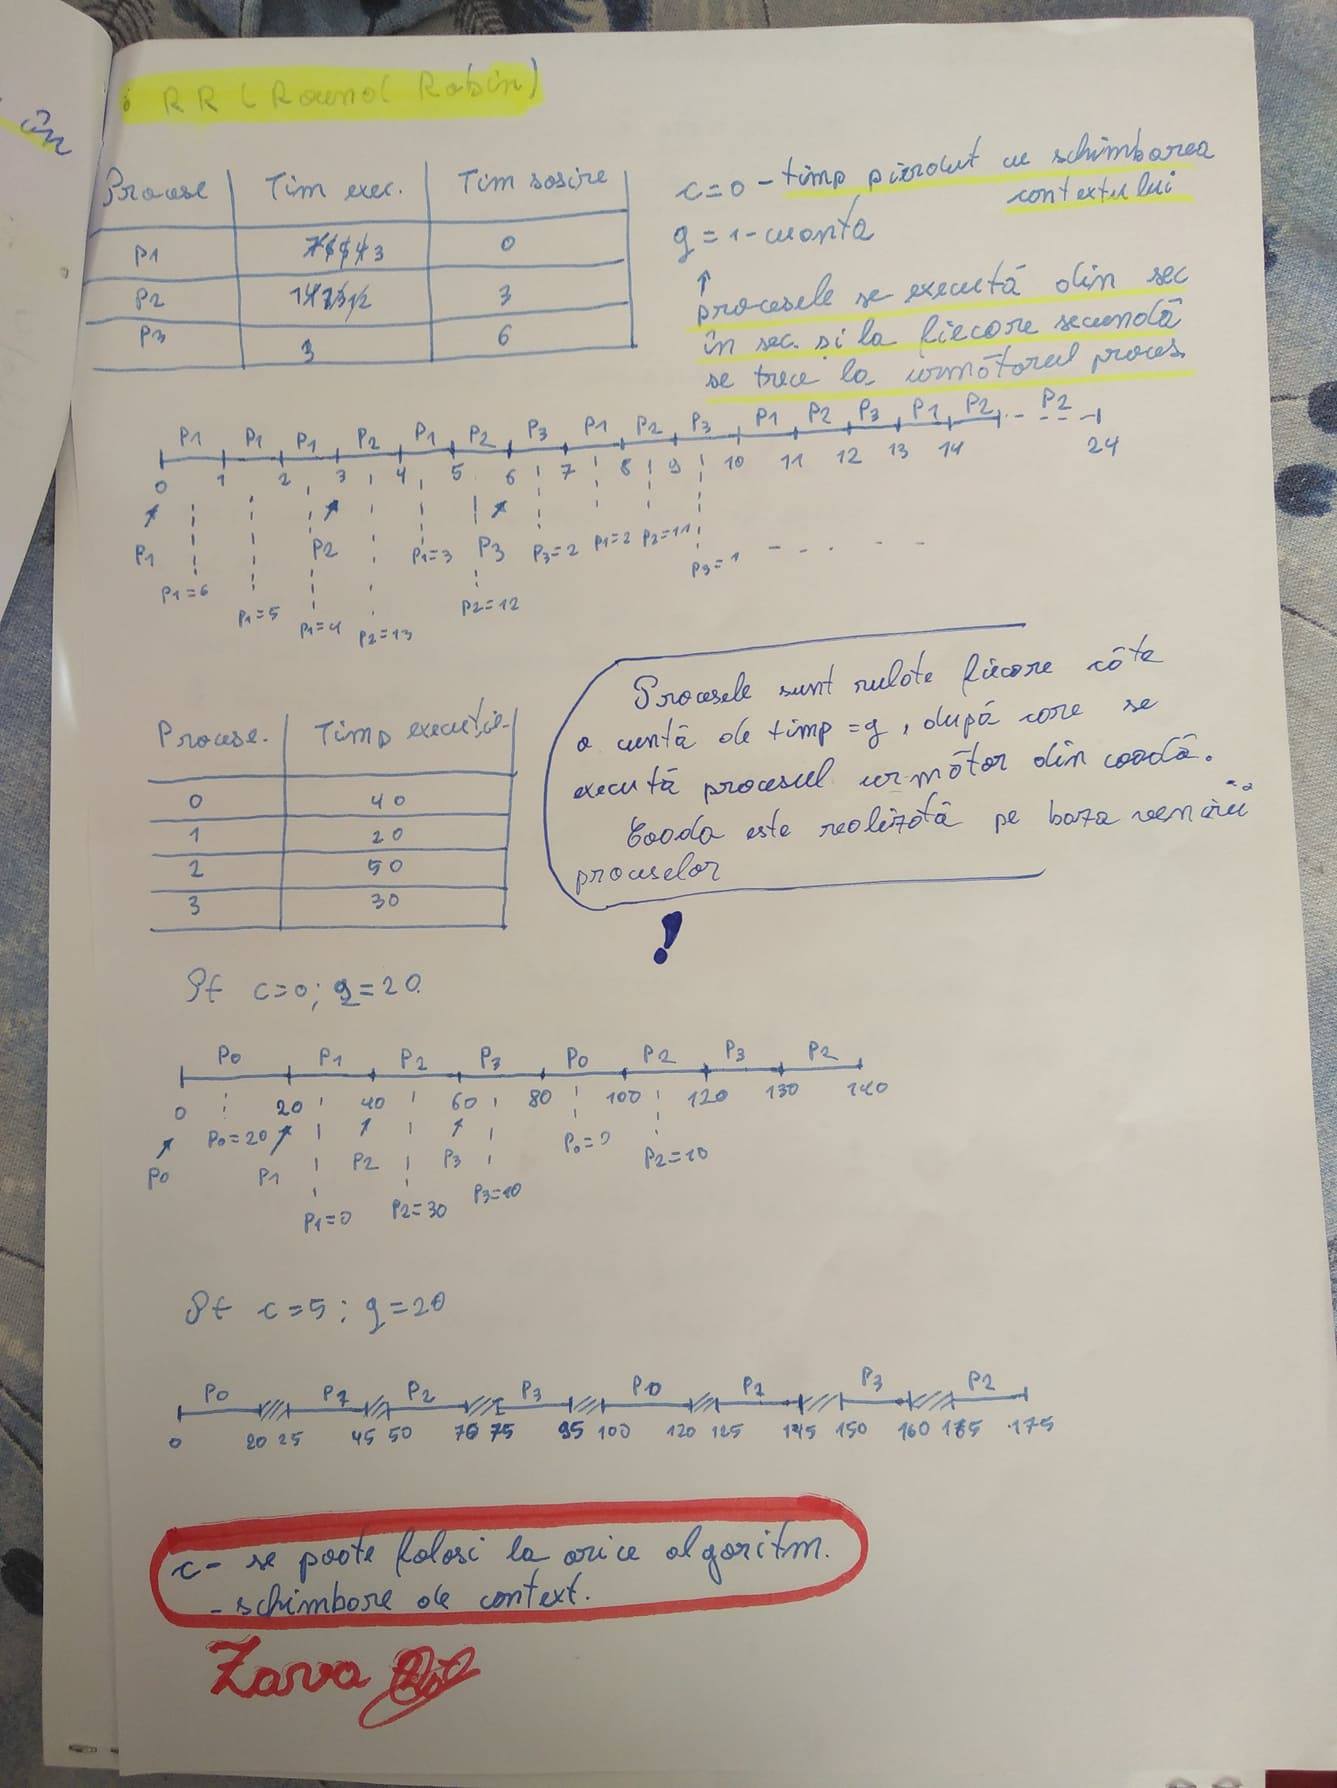 în
RR (Round Robin)
Procese Tim exec. Tim sosire
P1 3 0
P2 3
P3 3 6
c=0 - timp pierdut cu schimbarea
contextului
q=1 - cuantă
procesele se execută din sec
în sec. si la fiecare secundă
se trece la următorul proces.
P1 P1 P1 P2 P1 P2 P3 P1 P2 P3 P1 P2 P3 P1 P2 P2
0 1 2 3 4 5 6 7 8 9 10 11 12 13 14 24
P1 P2 P1=3 P3 P3=2 P1=2 P2=11
P3=1
P1=6 P1=5 P1=4 P2=13 P2=12
Procesele sunt rulate fiecare câte
o cuntă de timp =q, după care se
execută procesul următor din coadă.
Coada este realizată pe baza venării
proceselor
!
Procese. Timp execuție
0 40
1 20
2 50
3 30
Pt c=0; q=20.
P0 P1 P2 P3 P0 P2 P3 P2
0 20 40 60 80 100 120 130 140
P0 P0=20 P1 P2 P3 P0=0 P2=10
P1=0 P2=30 P3=10
Pt c=5; q=20
P0 P1 P2 P3 P0 P2 P3 P2
0 20 25 45 50 70 75 95 100 120 125 145 150 160 165 175
c - se poate folosi la orice algoritm.
- schimbare de context.
Zarva